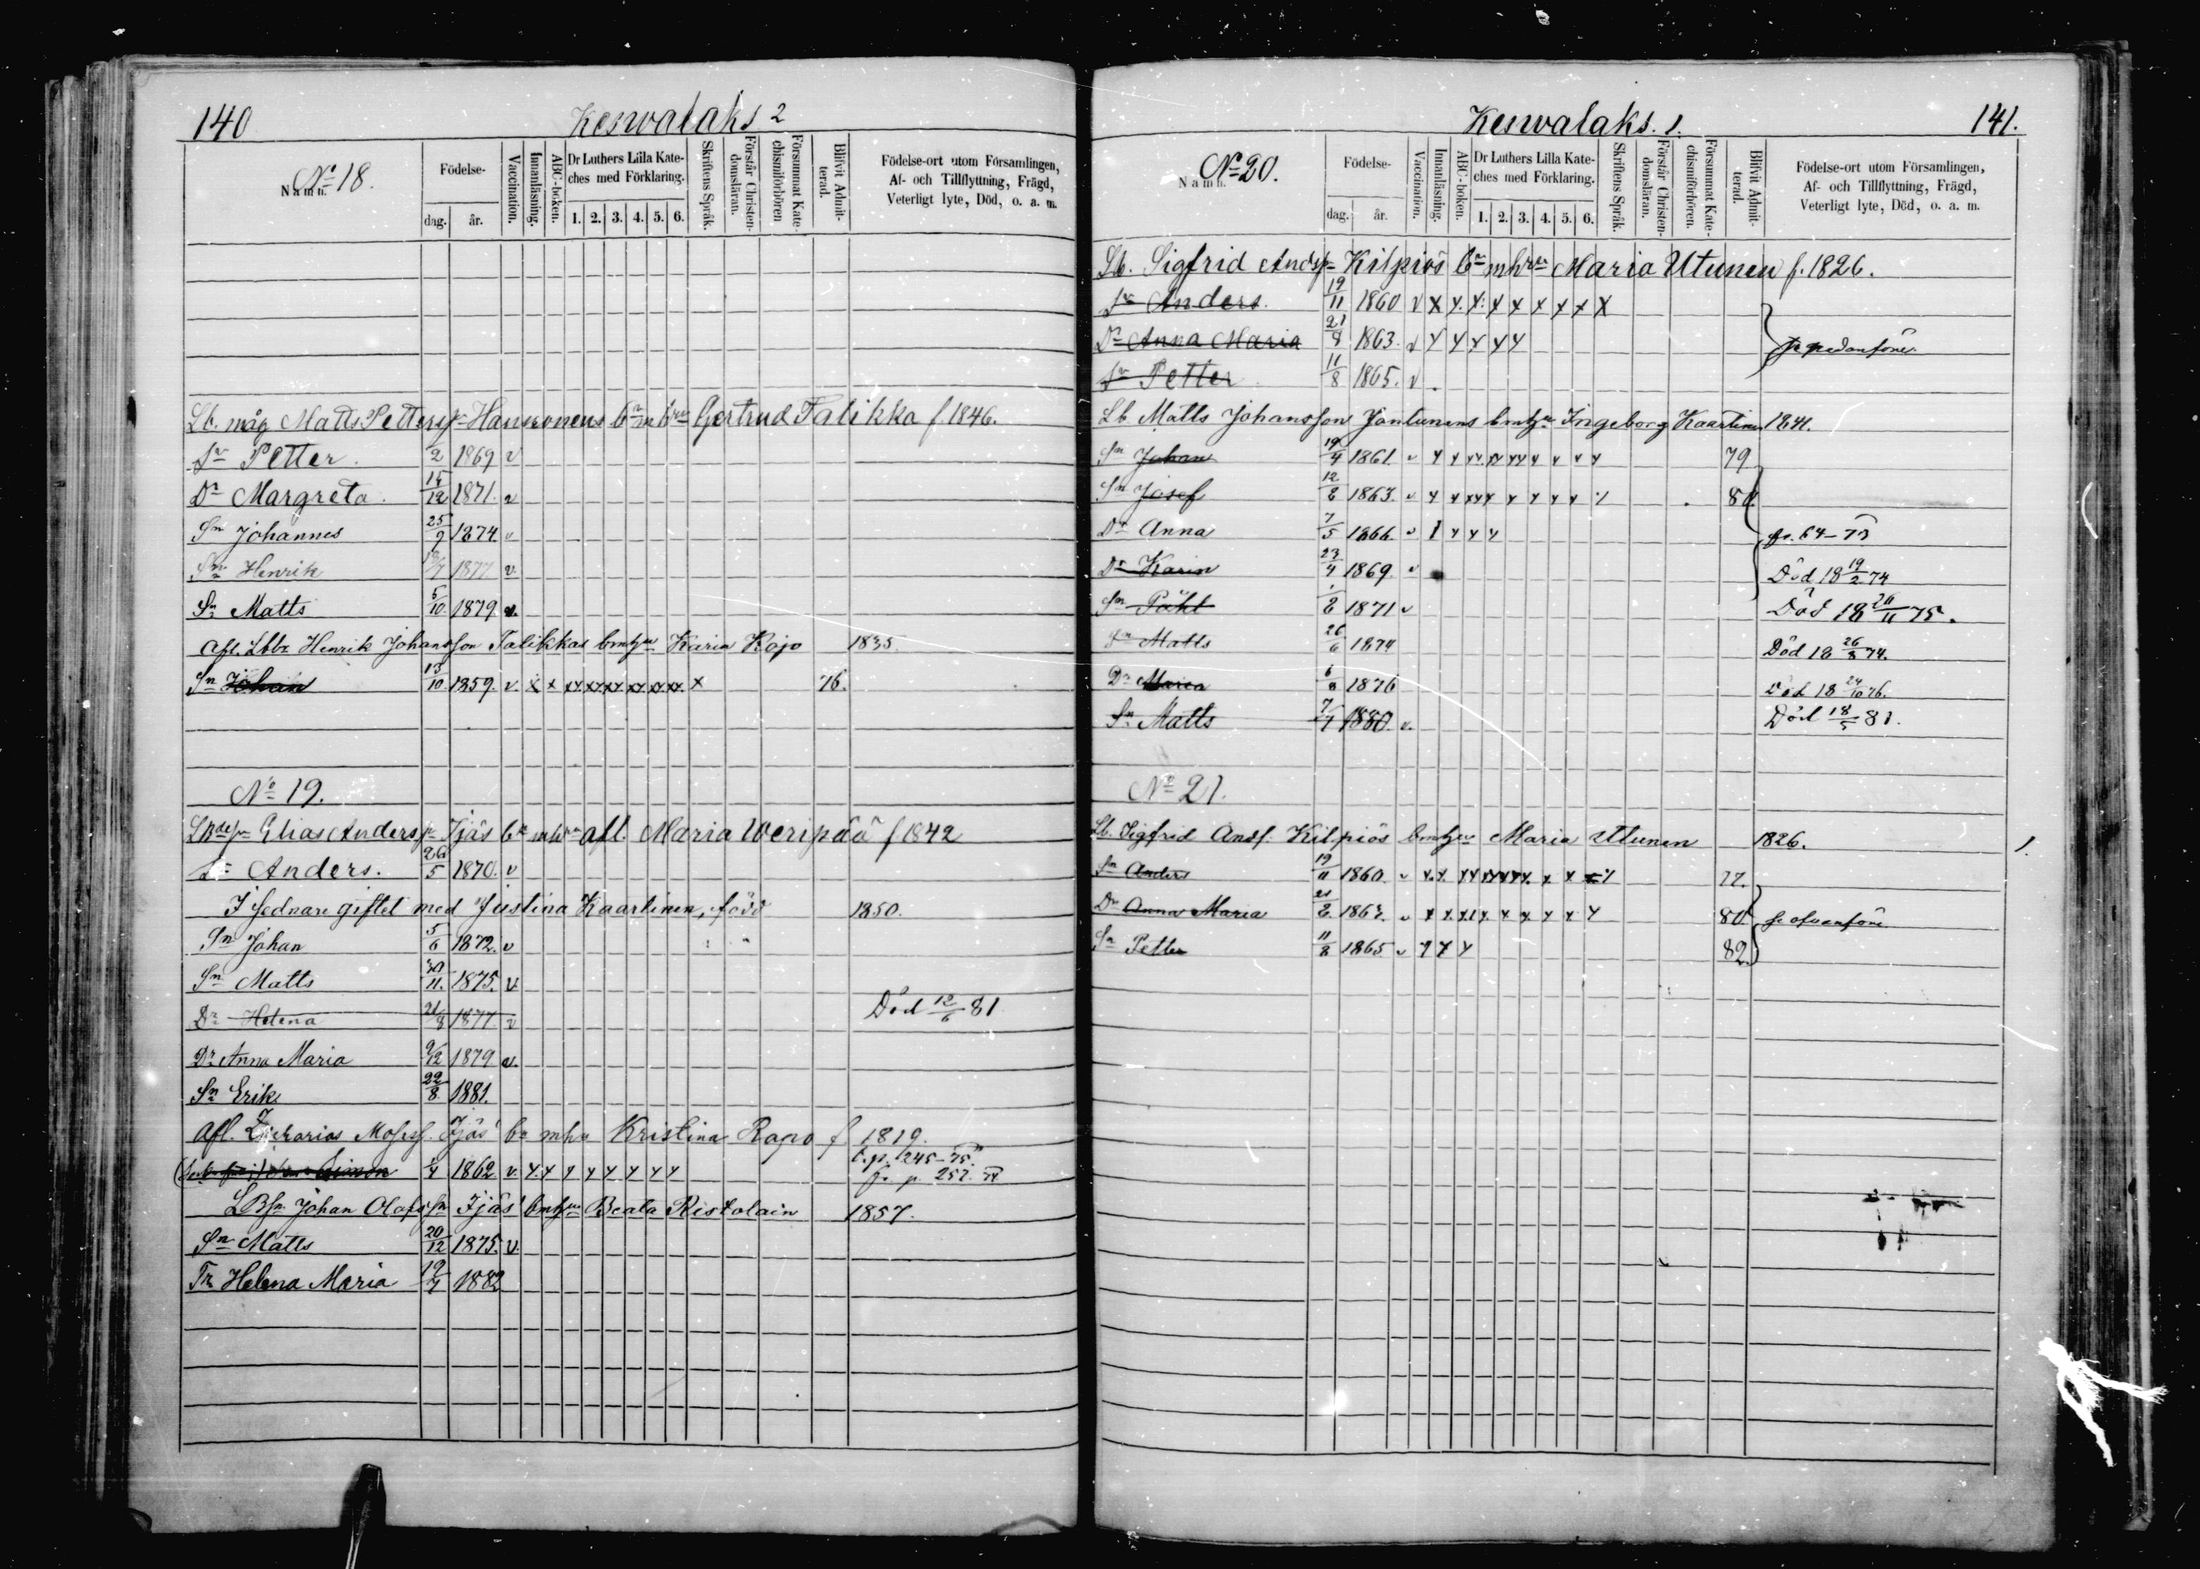 140 Keswalaks 2
No 18.
Namn. Födelse- dag. år. Vaccination. Innanläsning. ABC-boken. Dr Luthers Lilla Kateches med Förklaring. 1. 2. 3. 4. 5. 6. Skriftens Språk. Förstår Christendomsläran. Försummat Katechismiförhören. Blifvit Admitterad. Födelse-ort utom Församlingen, Af- och Tillflyttning, Frägd, Veterligt lyte, Död, o. a. m.
Lb. måg Matts Petters Gertrud Talikka f 1846.
Sn Petter 2 1869 v
Dr Margreta 14/12 1871. v
Sn Johannes 25/9 1874. v
Sn Henrik 1877 v.
Sn Matts 5/10 1879 v.
Afl. Lbbr. Henrik Johansson Talikkas bmhn Karin Kojo 1835.
Sn Johan 13/10 1859. v. x x xx xx xx xx xx xx. x 76.
No 19.
Elias Anders Ijäs afl. Maria Weripää f 1842
Sn Anders. 26/5 1870. v
I sednare giftet med Justina Kaartinen, född 1850.
Sn Johan 5/6 1872. v
Sn Matts 30/11. 1875. v
Dr Helena 21/8 1877 v Död 12/6 81
Dr Anna Maria 9/12 1879 v.
Sn Erik 22/8 1881.
Afl. Zacharias Mosess. Ijäs bn mhn Kristina Rapo f 1819.
245-75
Simon 1/4 1862 v. x x x x x x x x p. 257.
LBsn Johan Olofssn Ijäs bmhn Beata Ristolain 1857.
Sn Matts 20/12 1875. v.
Tr Helena Maria 1882
Keswalaks. 1. 141.
No 20.
Namn. Födelse- dag. år. Vaccination. Innanläsning. ABC-boken. Dr Luthers Lilla Kateches med Förklaring. 1. 2. 3. 4. 5. 6. Skriftens Språk. Förstår Christendomsläran. Försummat Katechismiförhören. Blifvit Admitterad. Födelse-ort utom Församlingen, Af- och Tillflyttning, Frägd, Veterligt lyte, Död, o. a. m.
Lb. Sigfrid Kilpiös bn mhn Maria Utunen f. 1826.
Sn Anders. 19/11 1860 v x x. x. x x x x x x
Dr Anna Maria 21/8 1863. v x x x x x se nedanföre
Sn Petter 11/8 1865. v
Lb Matts Johansson Jantunens bmhn Ingeborg Kaartinen 1841.
Sn Johan 19/4 1861. v x x xx xx xx x x x x 79
Sn Josef 12/8 1863. v x x xx x x x x x x 80.
Dr Anna 7/5 1866. v 1 x x x 64-73
Dr Karin 23/4 1869. v Död 18 19/2 74
Sn Påhl 1871 v Död 18 75.
Sn Matts 26/6 1874 Död 18 26/8 74.
Dr Maria 6/8 1876 Död 18 24/10 76.
Sn Matts 7/1 1880. v. Död 18/5 81.
No 21.
Lb. Sigfrid Andsf. Kilpiös bmhn Maria Utunen 1826. 1.
Sn Anders 19/11 1860. v x. x. xx xx xx. x x x 77.
Dr Anna Maria 21/8 1863. v x x. x x x x x x x 80. se ofvanföre
Sn Petter 11/8 1865 v x x x 82.